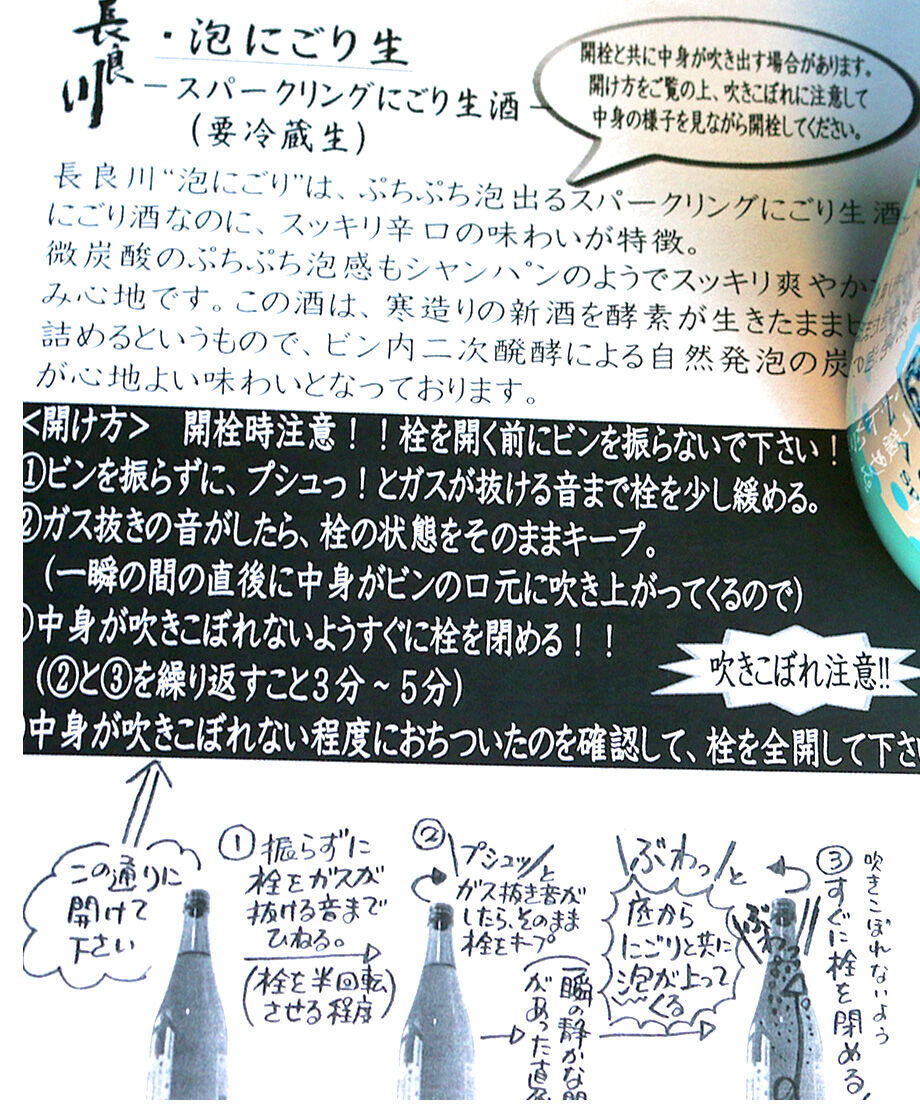 長良川
・泡にごり生
－スパークリングにごり生酒－
(要冷蔵生)
開栓と共に中身が吹き出す場合があります。
開け方をご覧の上、吹きこぼれに注意して
中身の様子を見ながら開栓してください。
長良川“泡にごり”は、ぷちぷち泡出るスパークリングにごり生酒
にごり酒なのに、スッキリ辛口の味わいが特徴。
微炭酸のぷちぷち泡感もシャンパンのようでスッキリ爽やか
み心地です。この酒は、寒造りの新酒を酵素が生きたまま
詰めるというもので、ビン内二次醗酵による自然発泡の炭
が心地よい味わいとなっております。
<開け方>　開栓時注意！！栓を開く前にビンを振らないで下さい！
①ビンを振らずに、プシュっ！とガスが抜ける音まで栓を少し緩める。
②ガス抜きの音がしたら、栓の状態をそのままキープ。
(一瞬の間の直後に中身がビンの口元に吹き上がってくるので)
中身が吹きこぼれないようすぐに栓を閉める！！
(②と③を繰り返すこと3分～5分)
吹きこぼれ注意!!
中身が吹きこぼれない程度におちついたのを確認して、栓を全開して下さ
この通りに
開けて
下さい
①振らずに
栓をガスが
抜ける音まで
ひねる。
(栓を半回転
させる程度)
②プシュッと
ガス抜き音が
したら、そのまま
栓をキープ
(一瞬の静かな間
があった直
ぶわっと
底から
にごりと共に
泡が上って
くる
ぶわっ
③すぐに栓を閉める！
吹きこぼれないよう